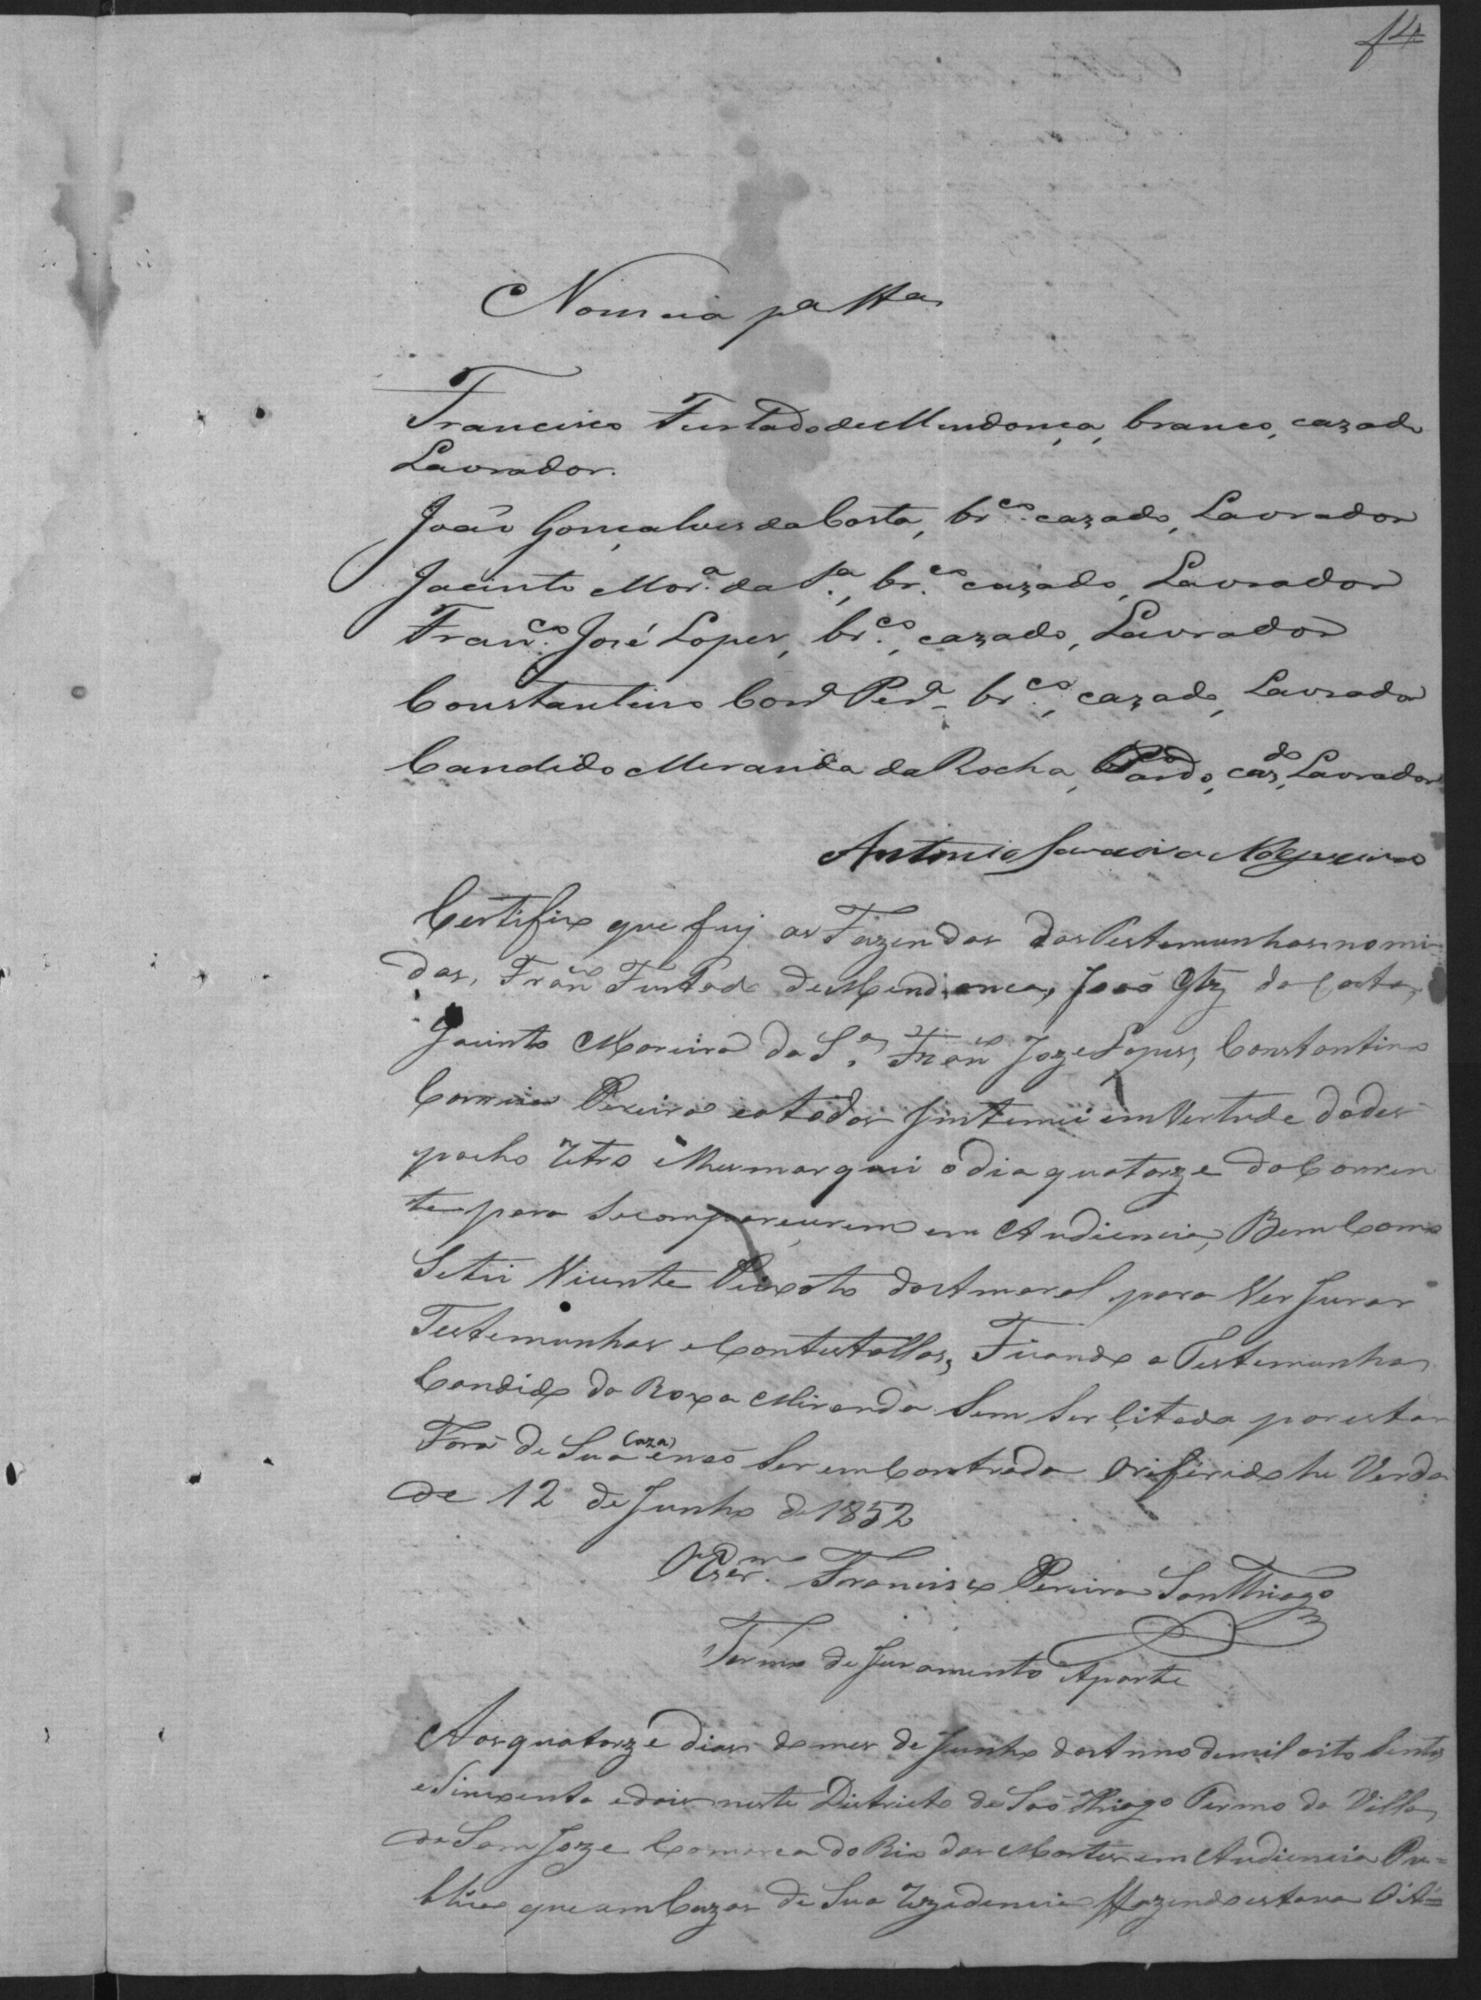 14
Nomeia pa ttas
Francisco Furtado de Mendonça, branco, cazado
Lavrador.
João Gonçalves da Costa, brco cazado, Lavrador
Jacinto Mora da Sa, brco cazado, Lavrador
Franco José Lopes, brco, cazado, Lavrador
Constantino Cora Pera brco, cazado, Lavrador
Candido Miranda da Rocha, Pardo, cazdo, Lavrador
Antonio Nogueira
Certifico que fuj as Fazendas das Testemunhas nomi
das, Franco Furtado de Mendonca, João Glz da Costa,
Jacinto Moreira da Sa, Franco Joze Lopes, Constantino
Correia Pereira e a todos Sintemei em Vertude do des
pacho retro e lhes marquei o dia quatorze do Corren
te para se comparecerem em Audiencia, Bem Como
Sitei Vicente Peixoto do Amaral para Ver Jurar
Testemunhas e Contestallas, Ficando a Testemunha
Candido da Roxa Miranda Sem Ser Çitada por estar
Fora de Sua (caza) e não Ser emContrado o riferido he Verda
de 12 de Junho de 1852
O Escrm Francisco Pereira SanThiago
Termo de Juramento Aparte
Aos quatorze dias do mes de Junho do Anno de mil oito Sentos
e Sincoenta e dois neste Districto de São Thiago Termo da Villa
de Sam Joze Comarca do Rio das Mortes em Audiencia Pu=
blica que em Cazas de Sua rezedencia Fazendo estava O A=